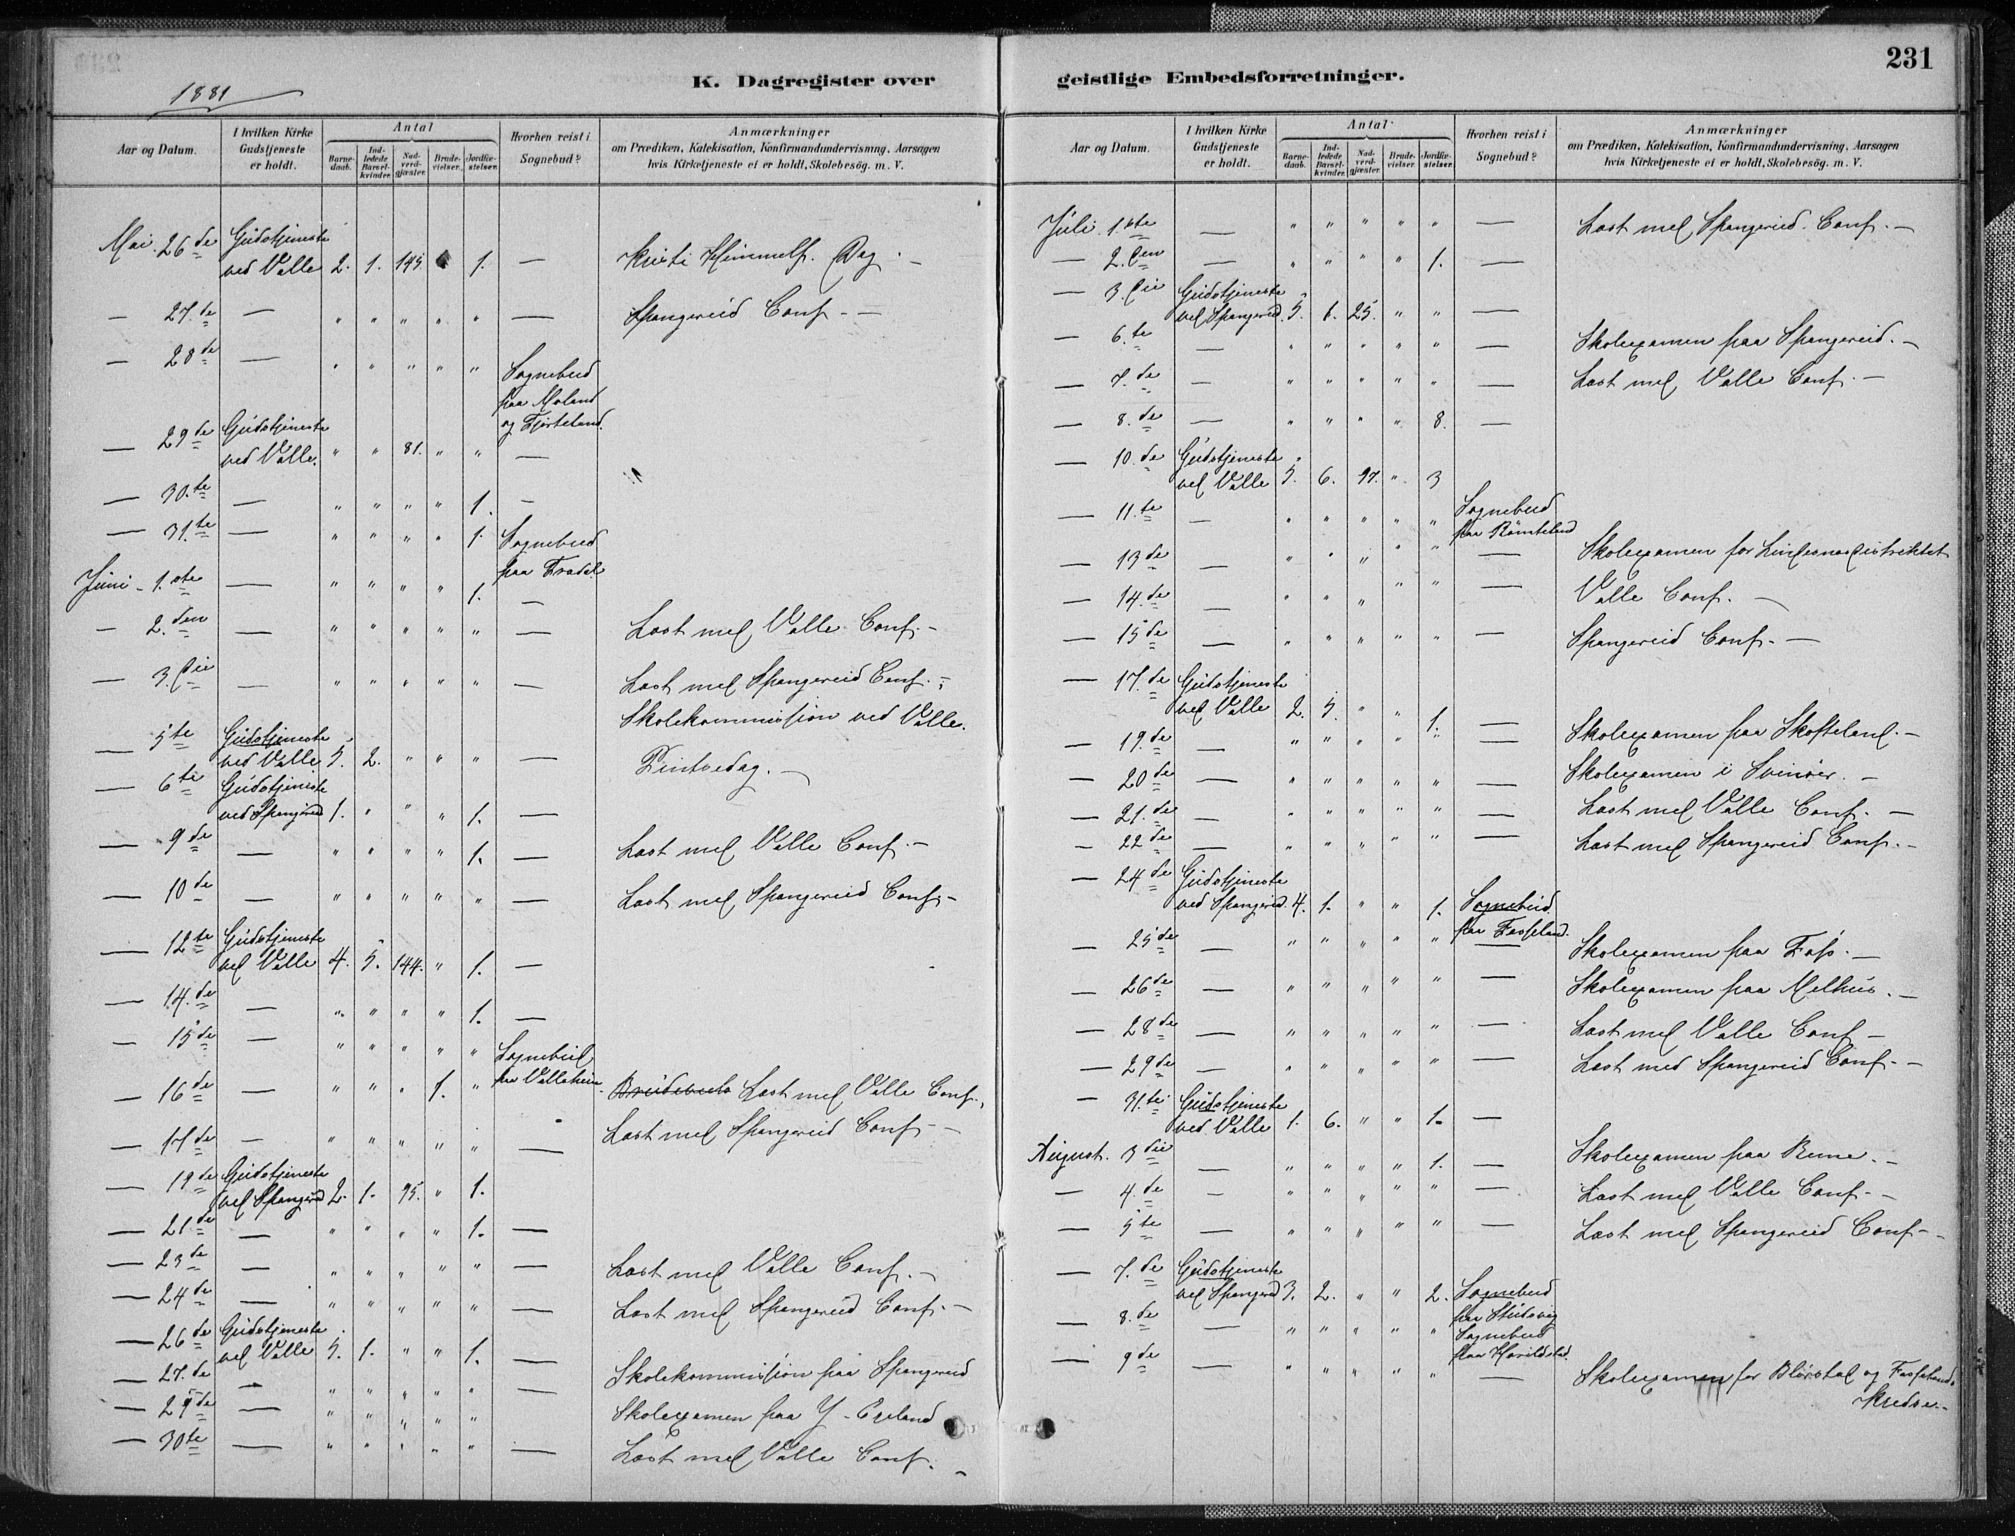 231
1881
K. Dagregister over
geistlige Embedsforretninger.
Aar og Datum.
I hvilken Kirke Gudstjeneste er holdt.
Antal
Barnedaab.
Indledede Barselkvinder.
Nadverdgjæster.
Brudevielser.
Jordfæstelser.
Hvorhen reist i Sognebud?
Anmærkninger
om Prædiken, Katekisation, Konfirmandundervisning, Aarsagen
hvis Kirketjeneste ei er holdt, Skolebesög. m. V.
Mai 26de Gudstjeneste
ved Valle 2. 1. 145 1. — Kristi Himmelf. Dag. —
— 27.de — " " " " " — Spangereid Conf. —
— 28de — " " " " " Sognebud
paa Moland
og Fjorteland.
— 29de Gudstjeneste
ved Valle. " " 81. " " —
— 30.te — " " " " 1. —
— 31.te — " " " " 1. Sognebud
paa
Juni 1.ste — " " " " 1. —
— 2.den — " " " " " — Læst med Valle Conf. —
— 3.die — " " " " " — Læst med Spangereid Conf. —
Skolekommission ved Valle.
— 5te Gudstjeneste
ved Valle 5. 2. " " " — Pintsedag. —
— 6te Gudstjeneste
ved Spangereid 1. " " " 1. —
— 9de — " " " " 1. — Læst med Valle Conf. —
— 10de — " " " " " — Læst med Spangereid Conf. —
— 12te Gudstjeneste
ved Valle 4. 5. 144. " 1. —
— 14.de — " " " " 1. —
— 15de — " " " " " Sognebud
paa Valleheim
— 16de — " " " 1. " Læst med Valle Conf.
— 17de — " " " " " — Læst med Spangereid Conf. —
— 19de Gudstjeneste
ved Spangereid 2. 1. 95. " 1.
— 21de — " " " " 1. —
— 23de — " " " " " — Læst med Valle Conf. —
— 24de — " " " " " — Læst med Spangereid Conf. —
— 26de Gudstjeneste
ved Valle 5. 1. " " 1. —
— 27.de — " " " " " — Skolekommission paa Spangereid
— 29de — " " " " " Skolexamen paa Y.
— 30te — " " " " " — Læst med Valle Conf. —
Aar og Datum.
I hvilken Kirke Gudstjeneste er holdt.
Antal
Barnedaab.
Indledede Barselkvinder.
Nadverdgjæster.
Brudevielser.
Jordfæstelser.
Hvorhen reist i Sognebud?
Anmærkninger
om Prædiken, Katekisation, Konfirmandundervisning, Aarsagen
hvis Kirketjeneste ei er holdt, Skolebesög. m. V.
Juli 1.ste — " " " " " — Læst med Spangereid Conf. —
— 2.den — " " " " 1. —
— 3.die Gudstjeneste
ved Spangereid 5. 6. 25. " " —
— 6.te — " " " " " — Skolexamen paa Spangereid. —
— 7.de — " " " " " — Læst med Valle Conf. —
— 8.de — " " " " 8. —
— 10.de Gudstjeneste
ved Valle 5. 6. 97. " 3
— 11.te — " " " " " Sognebud
paa
— 13de — " " " " " — Skolexamen for Lindesnæs Distriktet
— 14.de — " " " " " — Valle Conf. —
— 15de — " " " " " — Spangereid Conf. —
— 17.de Gudstjeneste
ved Valle 2. 5. " " 1. —
— 19.de — " " " " " — Skolexamen paa Skofteland. —
— 20de — " " " " " — Skolexamen i Svinöer. —
— 21.de — " " " " " — Læst med Valle Conf. —
— 22de — " " " " " — Læst med Spangereid Conf. —
— 24de Gudstjeneste
ved Spangereid 4. 1. " " 1. Sognebud
paa Fasseland.
— 25de — " " " " " — Skolexamen paa —
— 26de — " " " " " — Skolexamen paa Melhus. —
— 28de — " " " " " — Læst med Valle Conf —
— 29de — " " " " " — Læst med Spangereid Conf. —
— 31.te Gudstjeneste
ved Valle 1. 6. " " 1. —
August. 3die — " " " " 1. — Skolexamen paa Reme. —
— 4.de — " " " " " — Læst med Valle Conf. —
— 5te — " " " " " — Læst med Spangereid Conf. —
— 7.de Gudstjeneste
ved Spangereid 3. 2. " " 2. Sognebud
paa
— 8.de — " " " " " Sognebud
paa
— 9de " " " " " — Skolexamen for og
Kredse. —